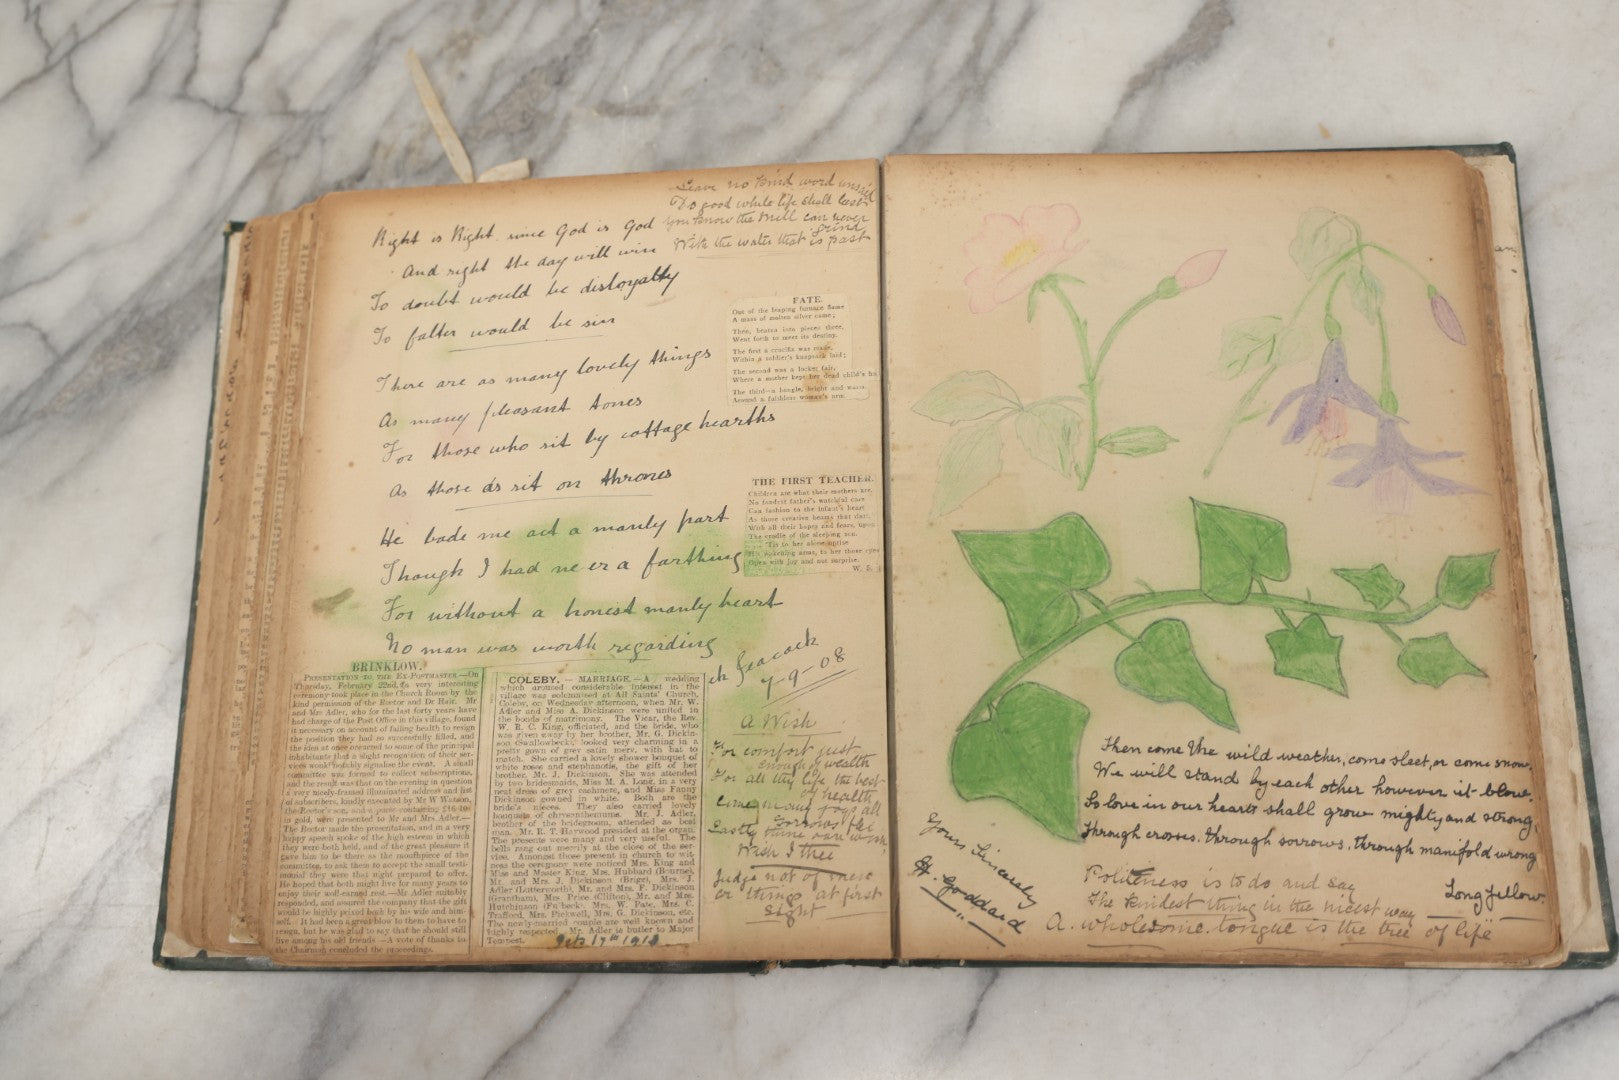 Leave no kind word unsaid
Do good while life shall last
you know the mill can never
grind
With the water that is past
Right is Right, since God is God
And right the day will win
To doubt would be disloyalty
To falter would be sin
There are as many lovely things
As many pleasant tones
For those who sit by cottage hearths
As those as sit on thrones
He bade me act a manly part
Though I had ne er a farthing
For without a honest manly heart
No man was worth regarding
Peacock
7-9-08
FATE.
Out of the leaping furnace flame
A mass of molten silver came;
Then, beaten into pieces three,
Went forth to meet its destiny.
The first a crucifix was made,
Within a soldier's knapsack laid;
The second was a locket fair,
Where a mother kept her dead child's
The third—a bangle, bright and warm,
Around a faithless woman's arm.
THE FIRST TEACHER.
Children are what their mothers are,
No fondest father's watchful care
Can fashion so the infant's heart
As those creative beams that dart,
With all their hopes and fears, upon
The cradle of the sleeping son.
'Tis to her alone uprise
His wakening arms, to her those eyes
Open with joy and not surprise.
W. S.
BRINKLOW.
PRESENTATION TO THE EX-POSTMASTER.—On
Thursday, February 22nd, a very interesting
ceremony took place in the Church Room by the
kind permission of the Rector and Dr. Hair. Mr
and Mrs Adler, who for the last forty years have
had charge of the Post Office in this village, found
it necessary on account of failing health to resign
the position they had so successfully filled, and
the idea at once occurred to some of the principal
inhabitants that a slight recognition of their ser-
vices would suitably signalise the event. A small
committee was formed to collect subscriptions,
and the result was that on the evening in question
a very nicely-framed illuminated address and list
of subscribers, kindly executed by Mr W Watson,
the Rector's son, and a purse containing £16 10s
in gold, were presented to Mr and Mrs Adler.—
The Rector made the presentation, and in a very
happy speech spoke of the high esteem in which
they were both held, and of the great pleasure it
gave him to be there as the mouthpiece of the
committee, to ask them to accept the small testi-
monial they had that night prepared to offer.
He hoped that both might live for many years to
enjoy their well-earned rest.—Mr Adler suitably
responded, and assured the company that the gift
would be highly prized both by his wife and him-
self. It had been a great blow to them to have to
resign, but he was glad to say that he should still
live among his old friends.—A vote of thanks to
the Chairman concluded the proceedings.
COLEBY. — MARRIAGE.—A wedding
which aroused considerable interest in the
village was solemnised at All Saints' Church,
Coleby, on Wednesday afternoon, when Mr. W.
Adler and Miss A. Dickinson were united in
the bonds of matrimony. The Vicar, the Rev.
W. R. C. King, officiated, and the bride, who
was given away by her brother, Mr. G. Dickin-
son (Swallowbeck), looked very charming in a
pretty gown of grey satin merv, with hat to
match. She carried a lovely shower bouquet of
white roses and stephanotis, the gift of her
brother, Mr. J. Dickinson. She was attended
by two bridesmaids, Miss M. A. Long, in a very
neat dress of grey cashmere, and Miss Fanny
Dickinson gowned in white. Both are the
bride's nieces. They also carried lovely
bouquets of chrysanthemums. Mr. J. Adler,
brother of the bridegroom, attended as best
man. Mr. R. T. Haywood presided at the organ.
The presents were many and very useful. The
bells rang out merrily at the close of the ser-
vice. Amongst those present in church to wit-
ness the ceremony were noticed Mrs. King and
Miss and Master King, Mrs. Hubbard (Bourne),
Mr. and Mrs. J. Dickinson (Brigg), Mrs. J.
Adler (Lutterworth), Mr. and Mrs. F. Dickinson
(Grantham), Mrs. Price (Clifton), Mr. and Mrs.
Hutchinson (Fulbeck), Mrs. W. Pate, Mrs. C.
Trafford, Mrs. Pickwell, Mrs. G. Dickinson, etc.
The newly-married couple are well known and
highly respected. Mr. Adler is butler to Major
Tempest.
17th 191
A Wish
For comfort just
enough of wealth
For all thy life the best
of health
joys all
Sorrows few
Lastly thine
Wish I thee
Judge not of men
or things at first
sight
Then come the wild weather, come sleet, or come snow,
We will stand by each other however it blow.
So love in our hearts shall grow mighty and strong,
Through crosses, through sorrows, through manifold wrong
Longfellow.
Yours Sincerely
H. Goddard
Politeness is to do and say
The kindest thing in the nicest way
A. wholesome tongue is the tree of life